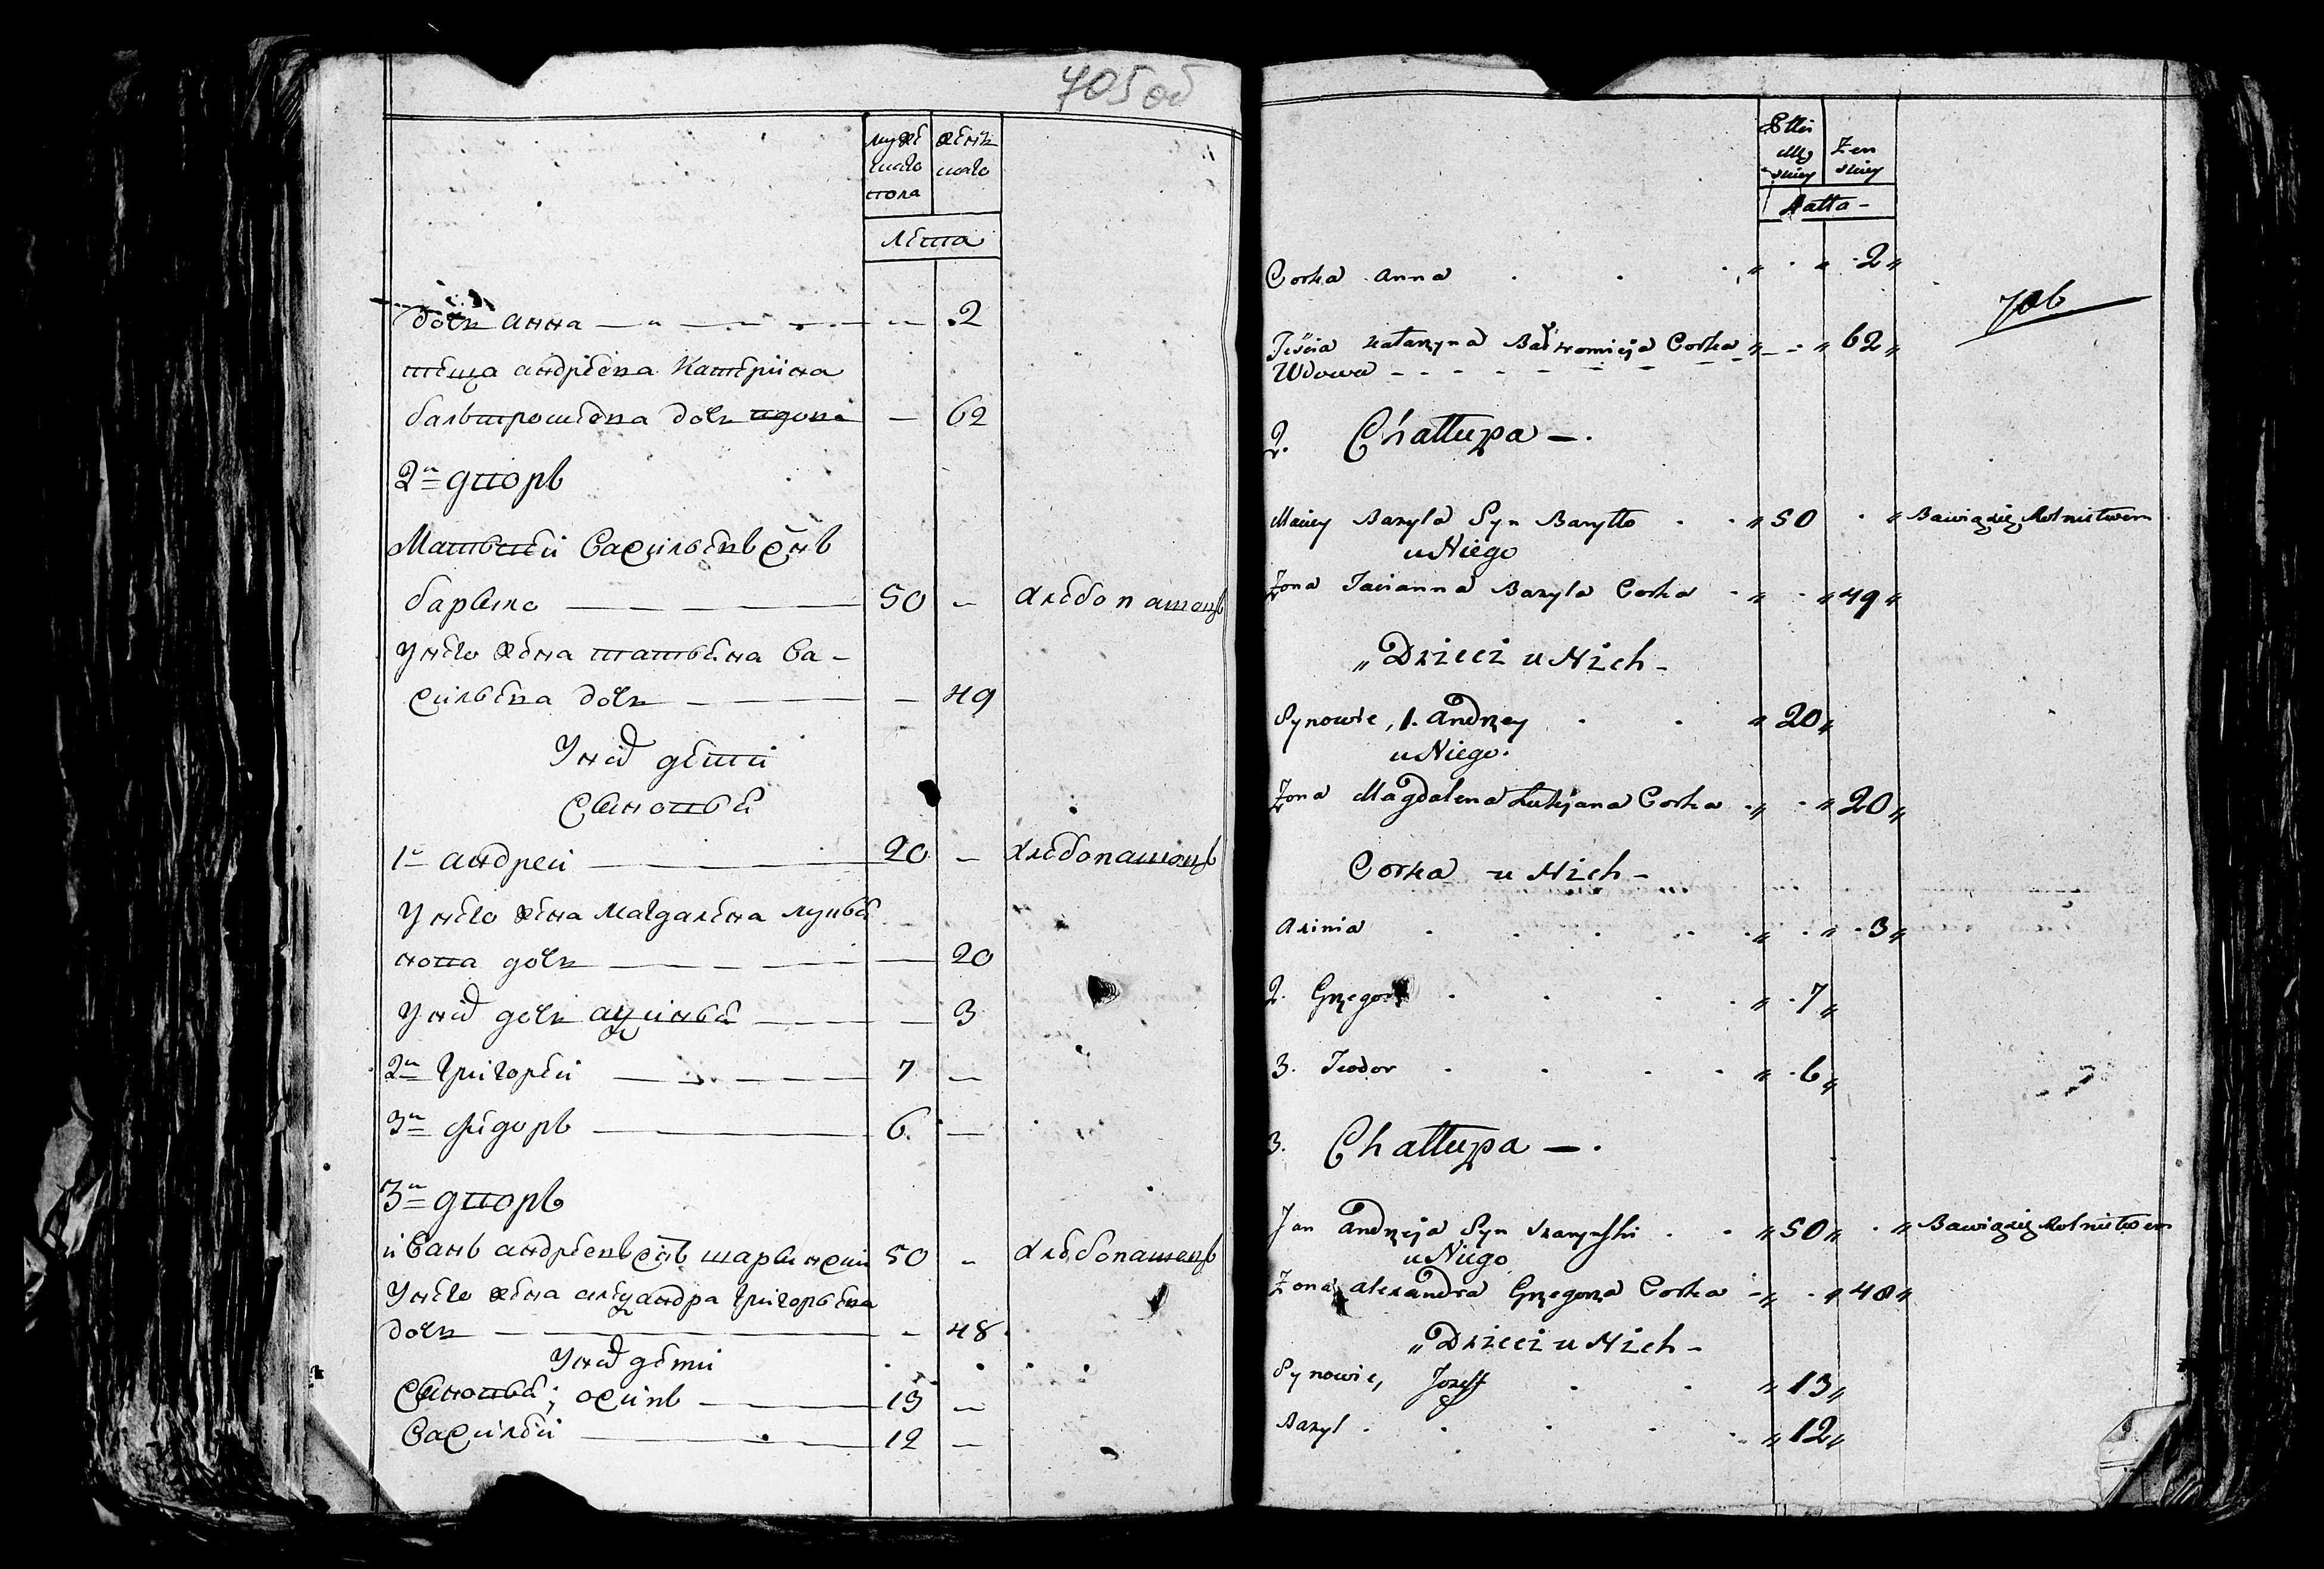 705 об
муже женъ
скаго скаго
пола
лѣта
дочь анна 2
теща андрѣева Катерiина
балътромѣева дочь вдова — 62
2й дворъ
Матьвѣй Васильевъ снъ
барыло 50 — хлебопашецъ
У него жена татьяна Ва-
сильева дочь — 49
У них дети
Сыновья
1й андреи 20 — хлебопашецъ
У него жена Магдалена лукья
нова дочь — 20
У них дочь аѯинья — 3
2й григореи 7 —
3й фиѣдоръ 6 —
3й дворъ
иванъ андреевъ снъ шарынски 50 — хлебопашецъ
У него жена алеѯандра григорьева
дочь — 48
У них дети
Сыновья; осипъ 13 —
Василѣй 12 —
Płci
Mę Żen
skiey skiey
Latta -
Corka Anna " " 2 "
706
Teścia Katarzyna Bałtromieja Corka " " 62 "
Wdowa
2. Chattupa —.
Maciey Bazyla Syn Baryłło " 50 " Bawiąsię Rolnictwem
u Niego
Żona Tacianna Bazyla Corka " " 49 "
" Dzieci u Nich -
Synowie, 1. Andrzey " 20 "
u Niego.
Żona Magdalena Lukjana Corka " " 20 "
Corka u Nich -
Axinia " " 3 "
2. Grzegorz " 7 "
3. Teodor " 6 "
3. Chattupa —.
Jan Andrzeja Syn Szarynski " 50 " " Bawiąsię Rolnictwem
u Niego
Żona Alexandra Grzegorza Corka " " 48 "
" Dzieci u Nich -
Synowie, Jozeff " 13 "
Bazyl " 12 "